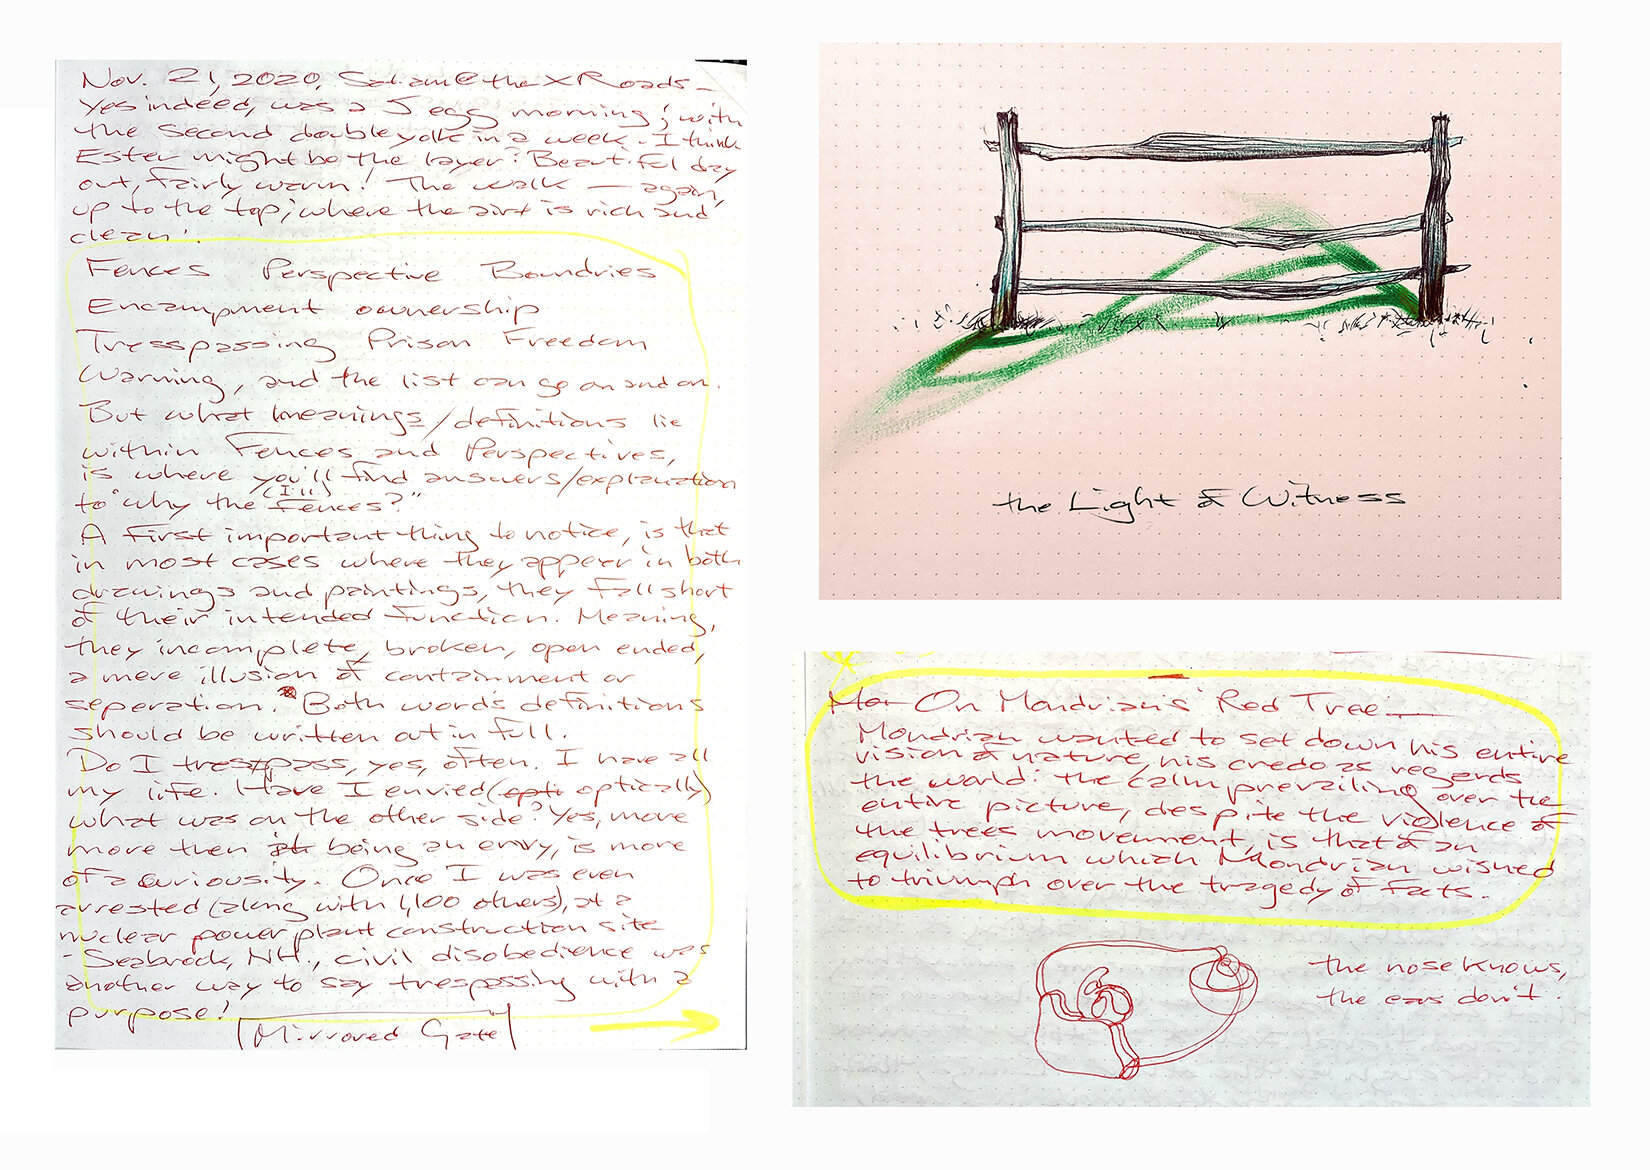 Nov. 21, 2020, Sat. am @ the X Roads –
Yes indeed, was a 5 egg morning; with
the second double yolk in a week. I think
Ester might be the layer? Beautiful day
out, fairly warm! The walk — again,
up to the top; where the air is rich and
clean!
Fences Perspective Boundries
Encampment ownership
Tresspassing Prison Freedom
Warning, and the list can go on and on.
But what meanings/definitions lie
within Fences and Perspectives,
is where you'll find answers/explanation
(I'll)
to "why the Fences?"
A first important thing to notice, is that
in most cases where they appear in both
drawings and paintings, they fall short
of their intended function. Meaning,
they incomplete, broken, open ended,
a mere illusion of containment or
seperation. * Both words definitions
should be written out in full.
Do I trespass, yes, often. I have all
my life. Have I envied (opti optically)
what was on the other side? Yes, more
more then it being an envy, is more
of a curiousity. Once I was even
arrested (along with 1,100 others), at a
nuclear power plant construction site
- Seabrook, NH., civil disobedience was
another way to say trespassing with a
purpose!
Mirrored Gate
the Light of Witness
On Mondrian's Red Tree —
Mondrian wanted to set down his entire
vision of nature, his credo as regards
the world: the calm prevailing over the
entire picture, despite the violence of
the trees movement, is that of an
equilibrium which Mondrian wished
to triumph over the tragedy of facts.
the nose knows,
the ears don't.